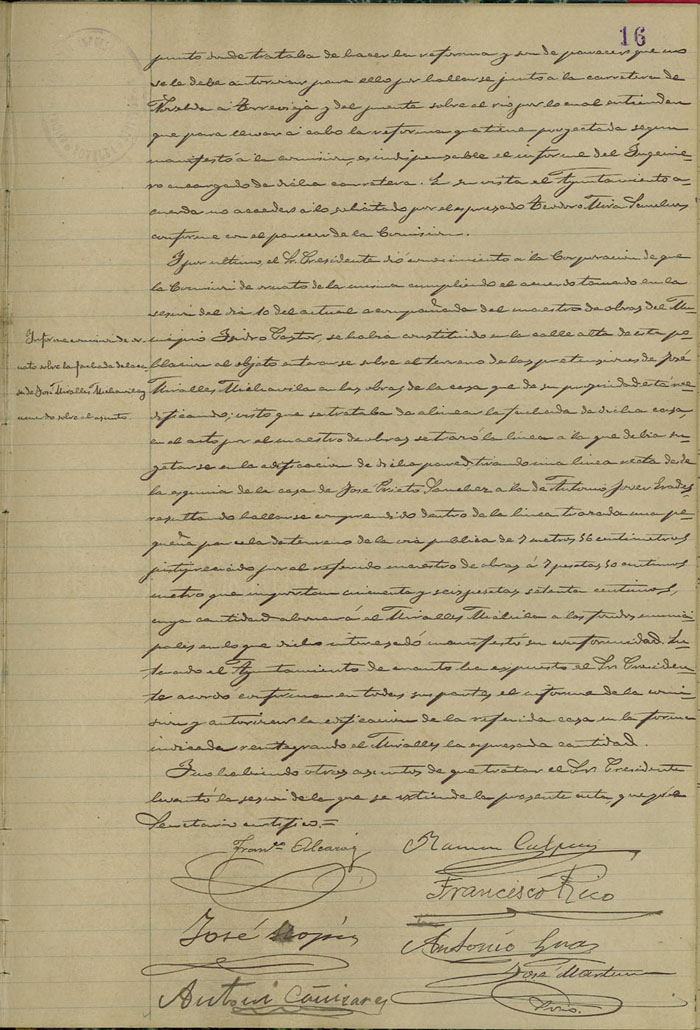 16
punto donde trataba de hacer la reforma y son de parecer que no
se le debe autorizar para ello por hallarse junto a la carretera de
Novelda a Torrevieja y del puente sobre el rio por lo cual entienden
que para llevar á cabo la reforma que tiene proyectada segun
manifestó á la comision, es indispensable el informe del Ingenie-
ro encargado de dicha carretera. En su vista el Ayuntamiento a-
cuerda no acceder a lo solicitado por el expresado Teodoro Mira
conforme con el parecer de la Comision.
Y por ultimo, el Sr. Presidente dió conocimiento á la Corporacion de que
la Comision de ornato de la misma cumpliendo el acuerdo tomado en la
sesion del dia 10 del actual acompañada del maestro de obras del Mu-
nicipio Isidro Pastor, se habia constituido en la calle alta de esta po-
blacion al objeto enterarse sobre el terreno de las pretensiones de José
Miralles Michavila a las obras de la casa que de su propiedad está ree-
dificando; visto que se trataba de alinear la fachada de dicha casa
en el acto por el maestro de obras se trazó la linea a la que debia su-
getarse en la edificacion de dicha pared, tirando una linea recta desde
la esquina de la casa de José Prieto Sanchez a la de Antonio
resultando hallarse comprendido dentro de la linea trazada una pe-
queña parcela de terreno de la via publica de 7 metros 56 centimetros
justipreciado por el referido maestro de obras á 7 pesetas 50 centimos
metro que importan cincuenta y seis pesetas setenta centimos,
cuya cantidad abonará el Miralles Michavila a los fondos munici-
pales en lo que dicho interesado manifestó su conformidad. En-
terado el Ayuntamiento de cuanto ha expuesto el Sr. Presiden-
te acordó confirmar en todas sus partes el informe de la comi-
sion y autorizar la edificacion de la referida casa en la forma
indicada reintegrando el Miralles la expresada cantidad.
Y no habiendo otros asuntos de que tratar el Sr. Presidente
levantó la sesion de la que se extiende la presente acta, que yo el
Secretario certifico.=
Informe comision de or-
nato sobre la fachada de la ca-
sa de José Miralles Michavila y
acuerdo sobre el asunto.
Franco Alcaraz
Ramon
Francisco Rico
José
Antonio
José Martinez
Srio.
Antonio Cañizares